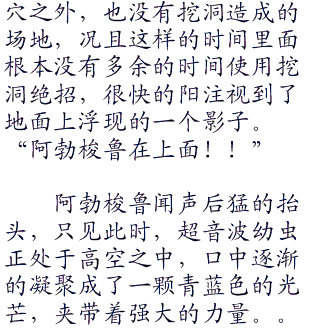 穴之外，也没有挖洞造成的
场地，况且这样的时间里面
根本没有多余的时间使用挖
洞绝招，很快的阳注视到了
地面上浮现的一个影子。
“阿勃梭鲁在上面！！”
阿勃梭鲁闻声后猛的抬
头，只见此时，超音波幼虫
正处于高空之中，口中逐渐
的凝聚成了一颗青蓝色的光
芒，夹带着强大的力量。。